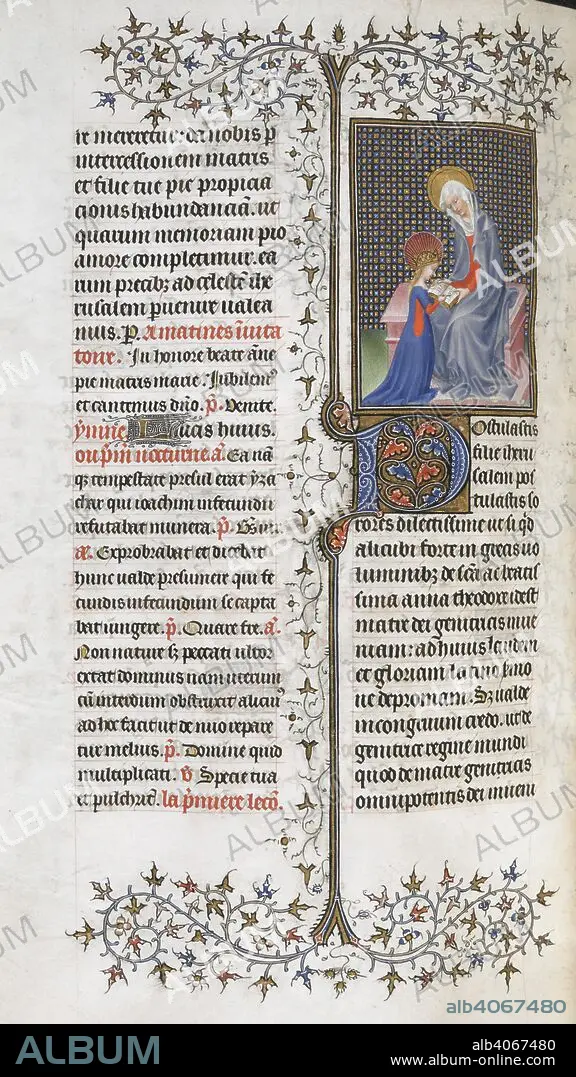 ir mereretur: da nobis p
intercessionem matris
et filie tue pie propicia
cionis habundanciã. ut
quarum memoriam pio
amore complectimur. ea
rum precibȝ ad celestẽ ihe
rusalem puenire valea
mus. P. A matines iuita
toire. In honore beate añe
pie matris marie. Jubilem9
et cantemus dño. p̃. Venite.
ymne Lucis huius.
ou pm̃ nocturne a.
tempestate presul erat
char qui ioachim infecundi
refutabat munera. p̃.
añ. Exprobrabat et dicebat
hunc valde presumere qui fe
cundis infecundum se capta
bat iungere. p̃. Quare fre. a.
Non nature sȝ peccati ultor
extat dominus nam uterum
cũ interdum obstruxit alicui9
ad hec facit ut de nuo repare
tur melius. p̃. Domine quid
multiplicati. v̄ Specie tua
et pulchrit. la pmiere lecõ.
Postulastis
filie iheru
salem pos
tulastis so
rores dilectissime ut si qd
alicubi forte in grecis uo
luminibȝ de scã ac beatis
sima anna theodore idest
matre dei genitricis inue
niam: ad huius laudem
et gloriam latino sermo
ne depromam. Sȝ valde
incongruum credo. ut de
genitrice regine mundi
quod de matre genitricis
omnipotentis dei inueni
ALBUM
alb4067480
ALBUM
alb4067480
www.album-online.com